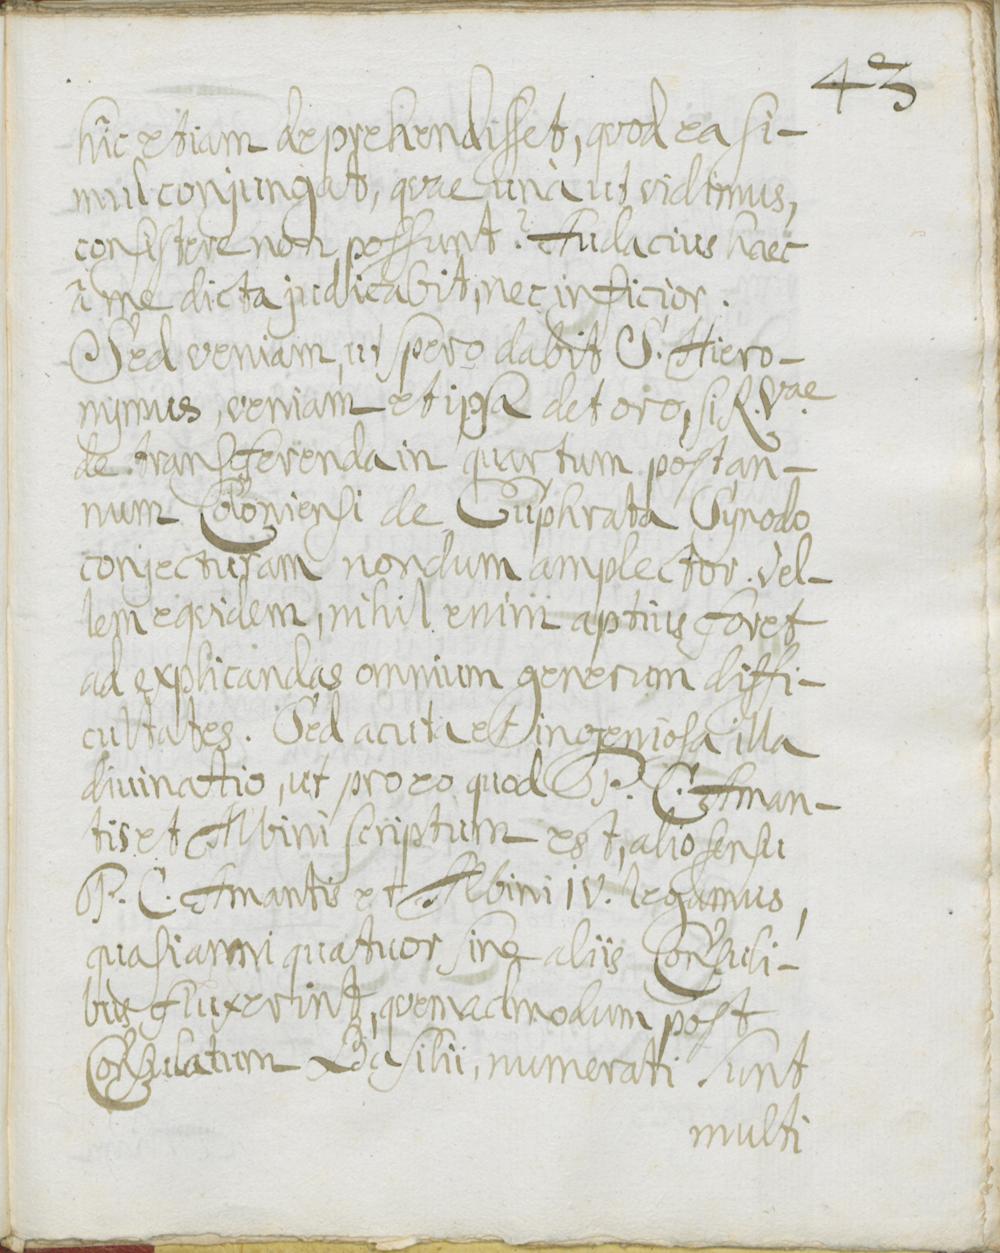 43
hic etiam deprehendisset, quod ea si-
mul conjungat, quae una ut vidimus,
consistere non possunt? Audacius haec
à me dicta judicabit, nec inficior.
Sed veniam, ut spero dabit S. Hiero-
nymus, veniam et ipsa det oro, si R. Vae
de transferenda in quartum post an-
num Coloniensi de Euphrata Synodo
conjecturam nondum amplector. Vel-
lem equidem, nihil enim aptius foret
ad explicandas omnium generum diffi-
cultates. Sed acuta et ingeniosa illa
divinatio, ut pro eo quod P. C. Aman-
tis et Albini scriptum est, alio sensu
P. C. Amantis et Albini IV. legamus,
quasi anni quatuor sine aliis Consuli-
bus fluxerint, quemadmodum post
Consulatum Basilii, numerati sunt
multi